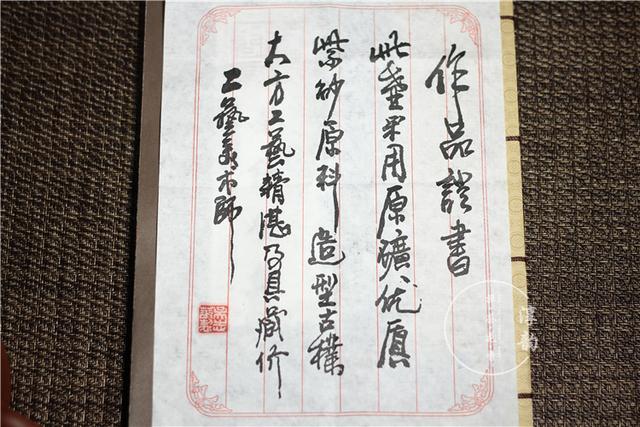 作品證書
此壶采用原礦优质
紫砂原料造型古樸
大方工藝精湛乃具藏价
工藝美术師
淳韵